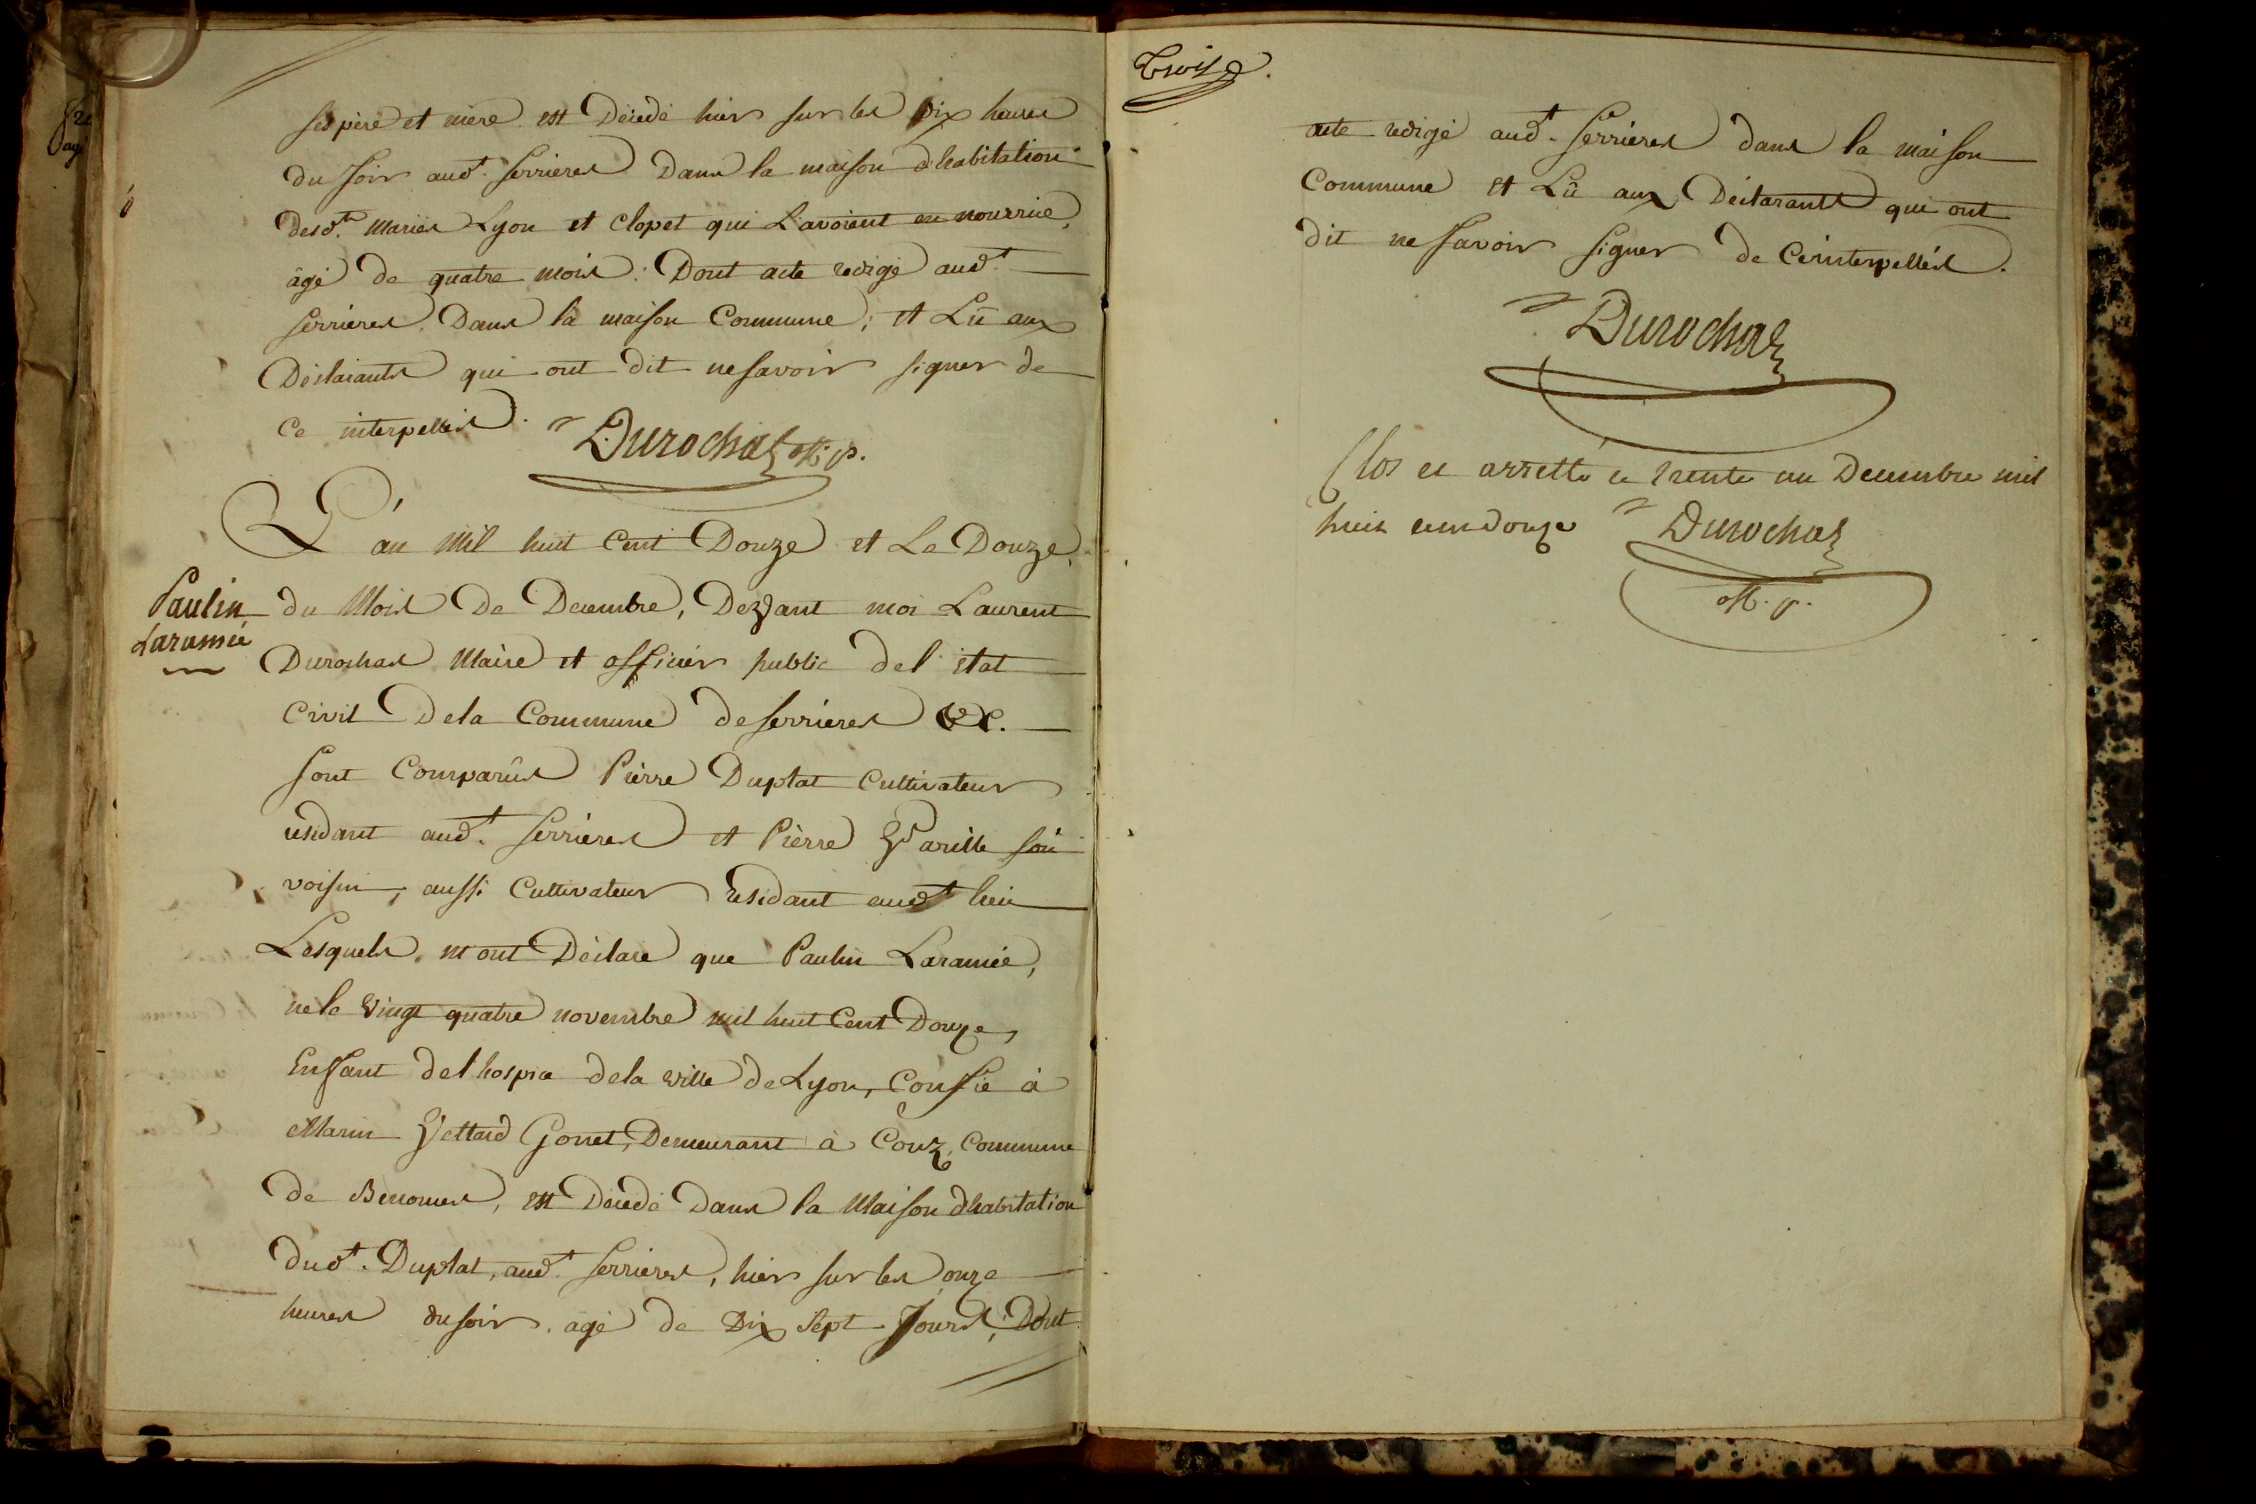 ses père et mere est Décédé hier sur les Dix heures
du soir aud.t Serrieres Dans la maison d'habitation
desd.ts Mariés Lyon et Clopet qui L'avoient en nourrice,
âgé de quatre mois: Dont acte redigé aud.t
Serrieres Dans la maison Commune; et Lû aux
Déclarants qui ont dit ne savoir signer de
Ce interpellés. Durochat off. p.
L'an Mil huit Cent Douze et Le Douze
Paulin
Laramée
du Mois De Decembre, Devant moi Laurent
Durochat Maire et officier public del'état
Civil Dela Commune de Serrieres &C.
sont Comparûs Pierre Duplat Cultivateur
residant aud.t Serrieres et Pierre son
voisin, aussi Cultivateur residant aud.t lieu
Lesquels m'ont Déclaré que Paulin Laramée,
né le Vingt quatre novembre mil huit Cent Douze,
Enfant del'hospice dela ville de Lyon, Confié à
Marin Gonet, Demeurant à Couz, Commune
de, est Décédé Dans la Maison d'habitation
dud.t Duplat, aud.t Serrieres, hier sur les onze
heures du soir, agé de Dix Sept Jours; Dont
Trois
acte redigé aud.t Serrieres dans la maison
Commune et Lû aux Déclarants qui ont
dit ne savoir signer de Ce interpellés.
Durochat
Clos et arretté ce trente un Decembre mil
huit cent douze Durochat
off. p.